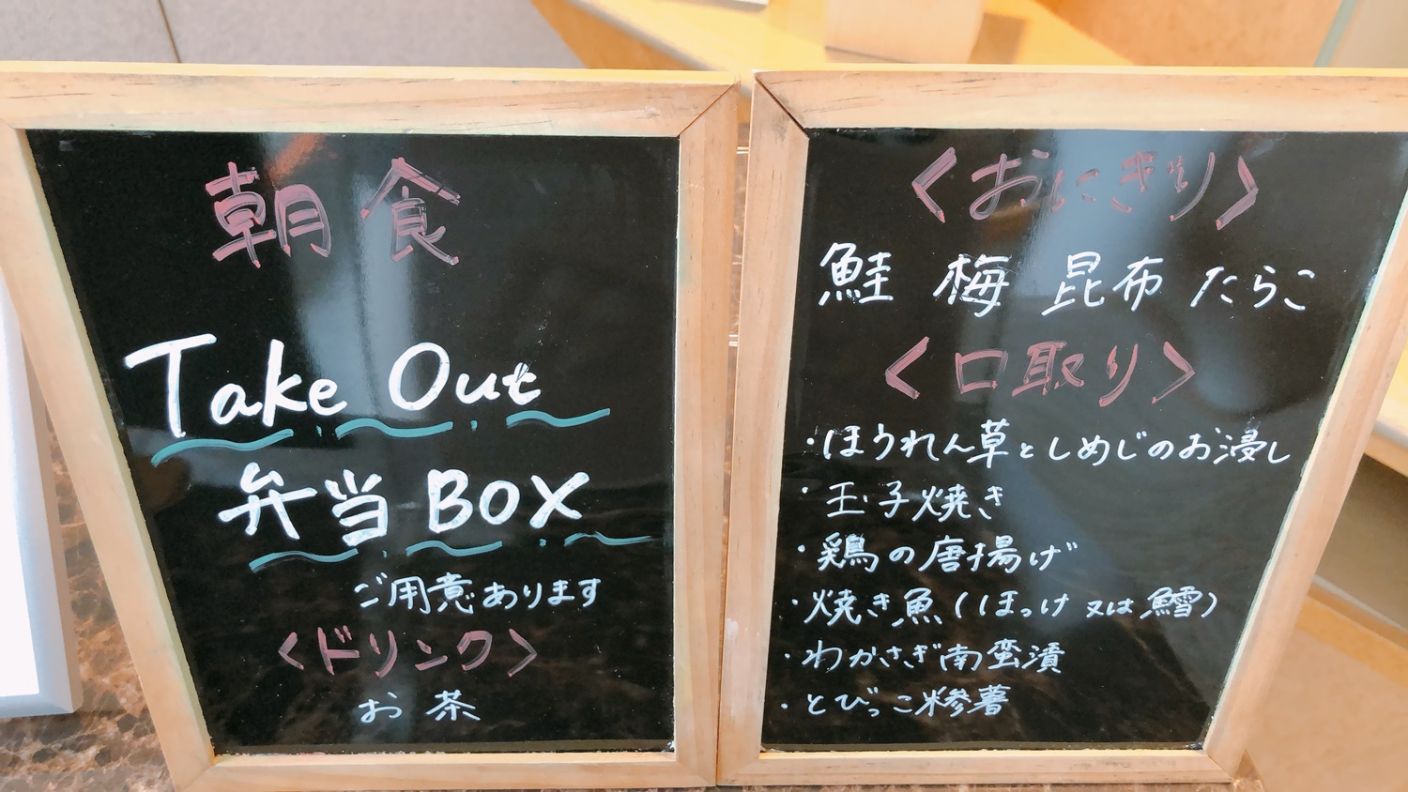 朝食
Take Out
弁当 BOX
ご用意あります
<ドリンク>
お茶
<おにぎり>
鮭 梅 昆布 たらこ
<口取り>
・ほうれん草としめじのお浸し
・玉子焼き
・鶏の唐揚げ
・焼き魚(ほっけ又は鱈)
・わかさぎ南蛮漬
・とびっこ糝薯